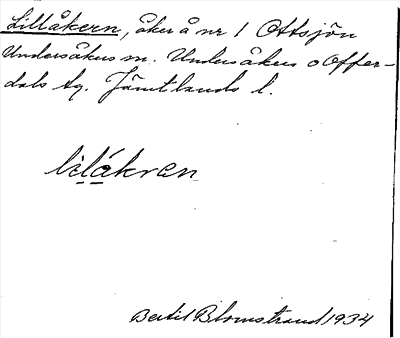 Lillåkern, åker å nr 1 Ottsjön
Undersåkers sn. Undersåkers o Offer-
dals tg. Jämtlands l.
lilåkren
Bertil Blomstrand 1934